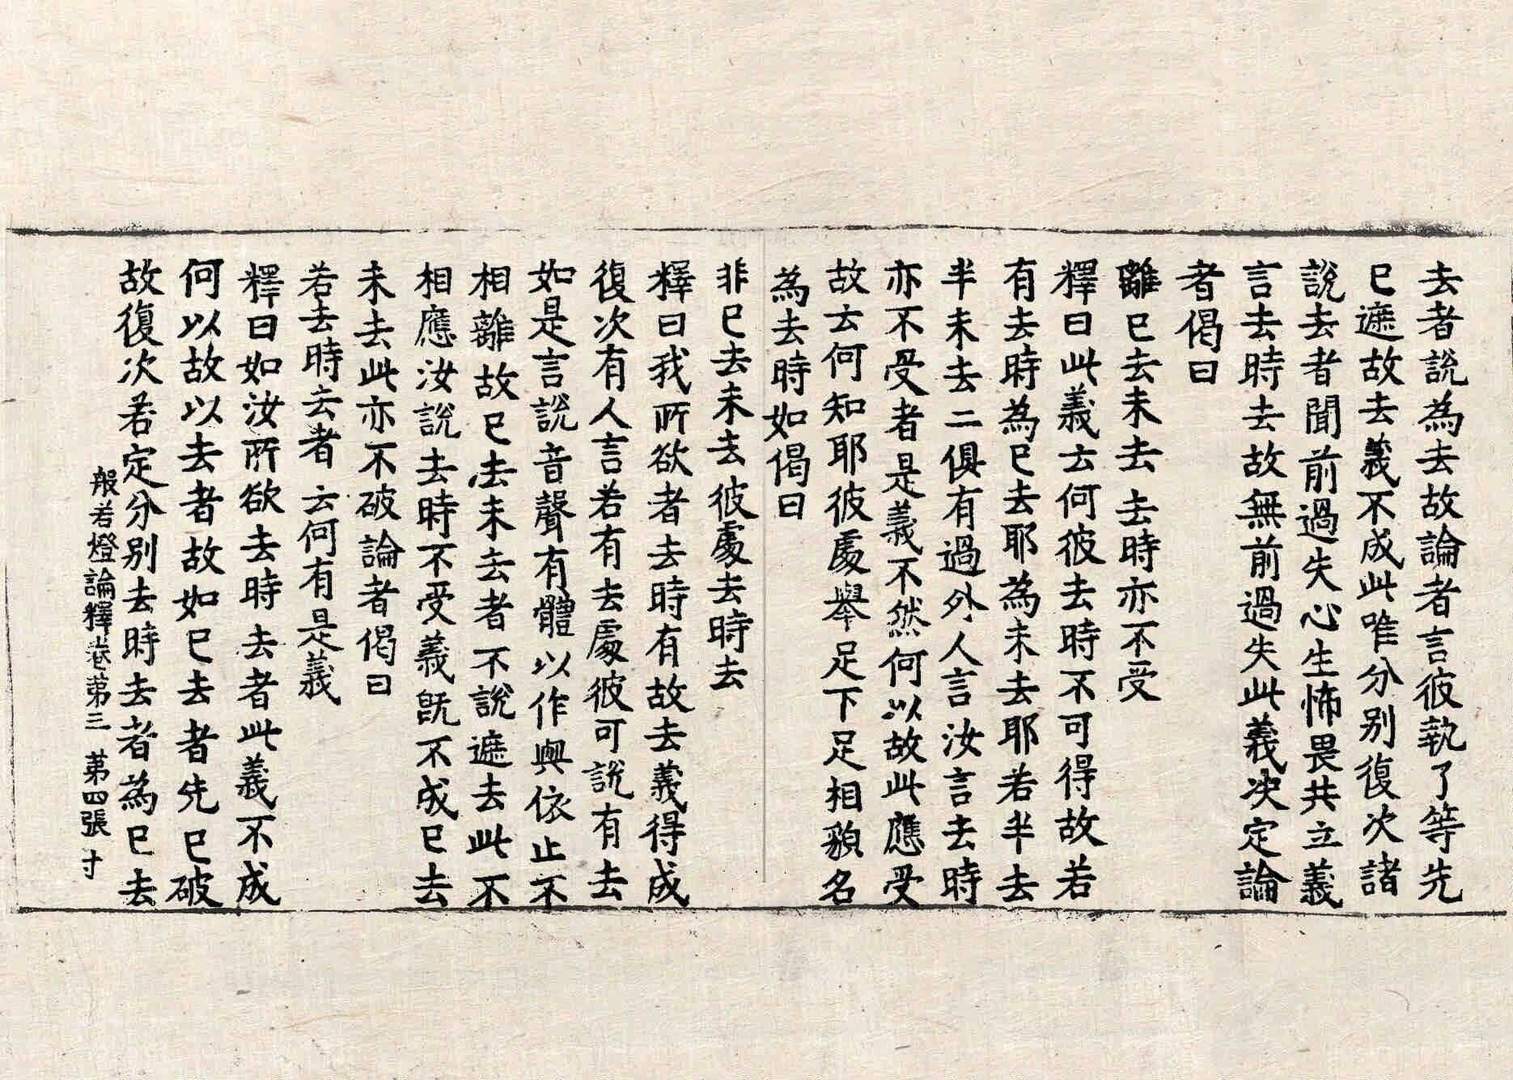 去者說為去故論者言彼執了等先
已遮故去義不成此唯分别復次諸
說去者聞前過失心生怖畏共立義
言去時去故無前過失此義决定論
者偈曰
離已去未去 去時亦不受
釋曰此義云何彼去時不可得故若
有去時為已去耶為未去耶若半去
半未去二俱有過外人言汝言去時
亦不受者是義不然何以故此應受
故云何知耶彼處舉足下足相貌名
為去時如偈曰
非已去未去彼處去時去
釋曰我所欲者去時有故去義得成
復次有人言若有去處彼可說有去
如是言說音聲有體以作與依止不
相離故已去未去者不說遮去此不
相應汝說去時不受義旣不成已去
未去此亦不破論者偈曰
若去時去者 云何有是義
釋曰如汝所欲去時去者此義不成
何以故以去者故如已去者先已破
故復次若定分别去時去者為已去
般若燈論釋卷苐三 苐四張 寸